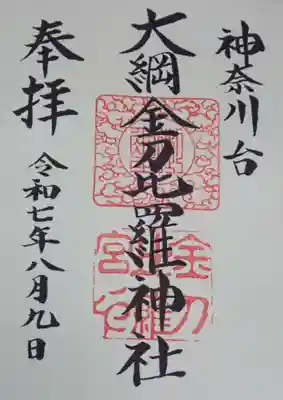 神奈川台
大綱金刀比羅神社
奉拝
令和七年八月九日